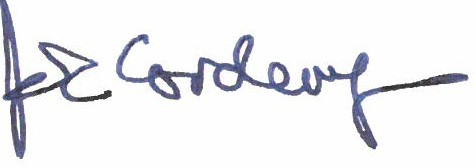 JE Corderoy